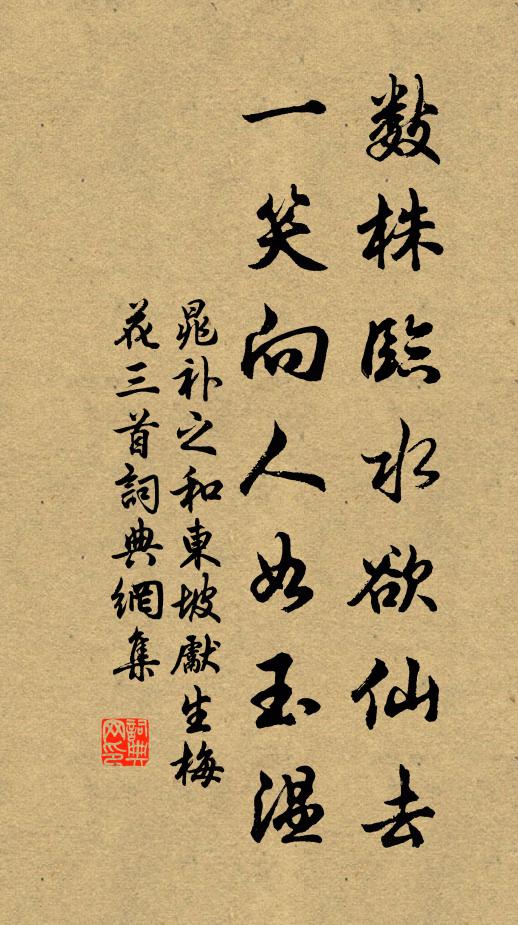 数株臨水欲仙去
一笑向人如玉温
晁补之和東坡獻生梅
花三首詞典網集
詞典
网印